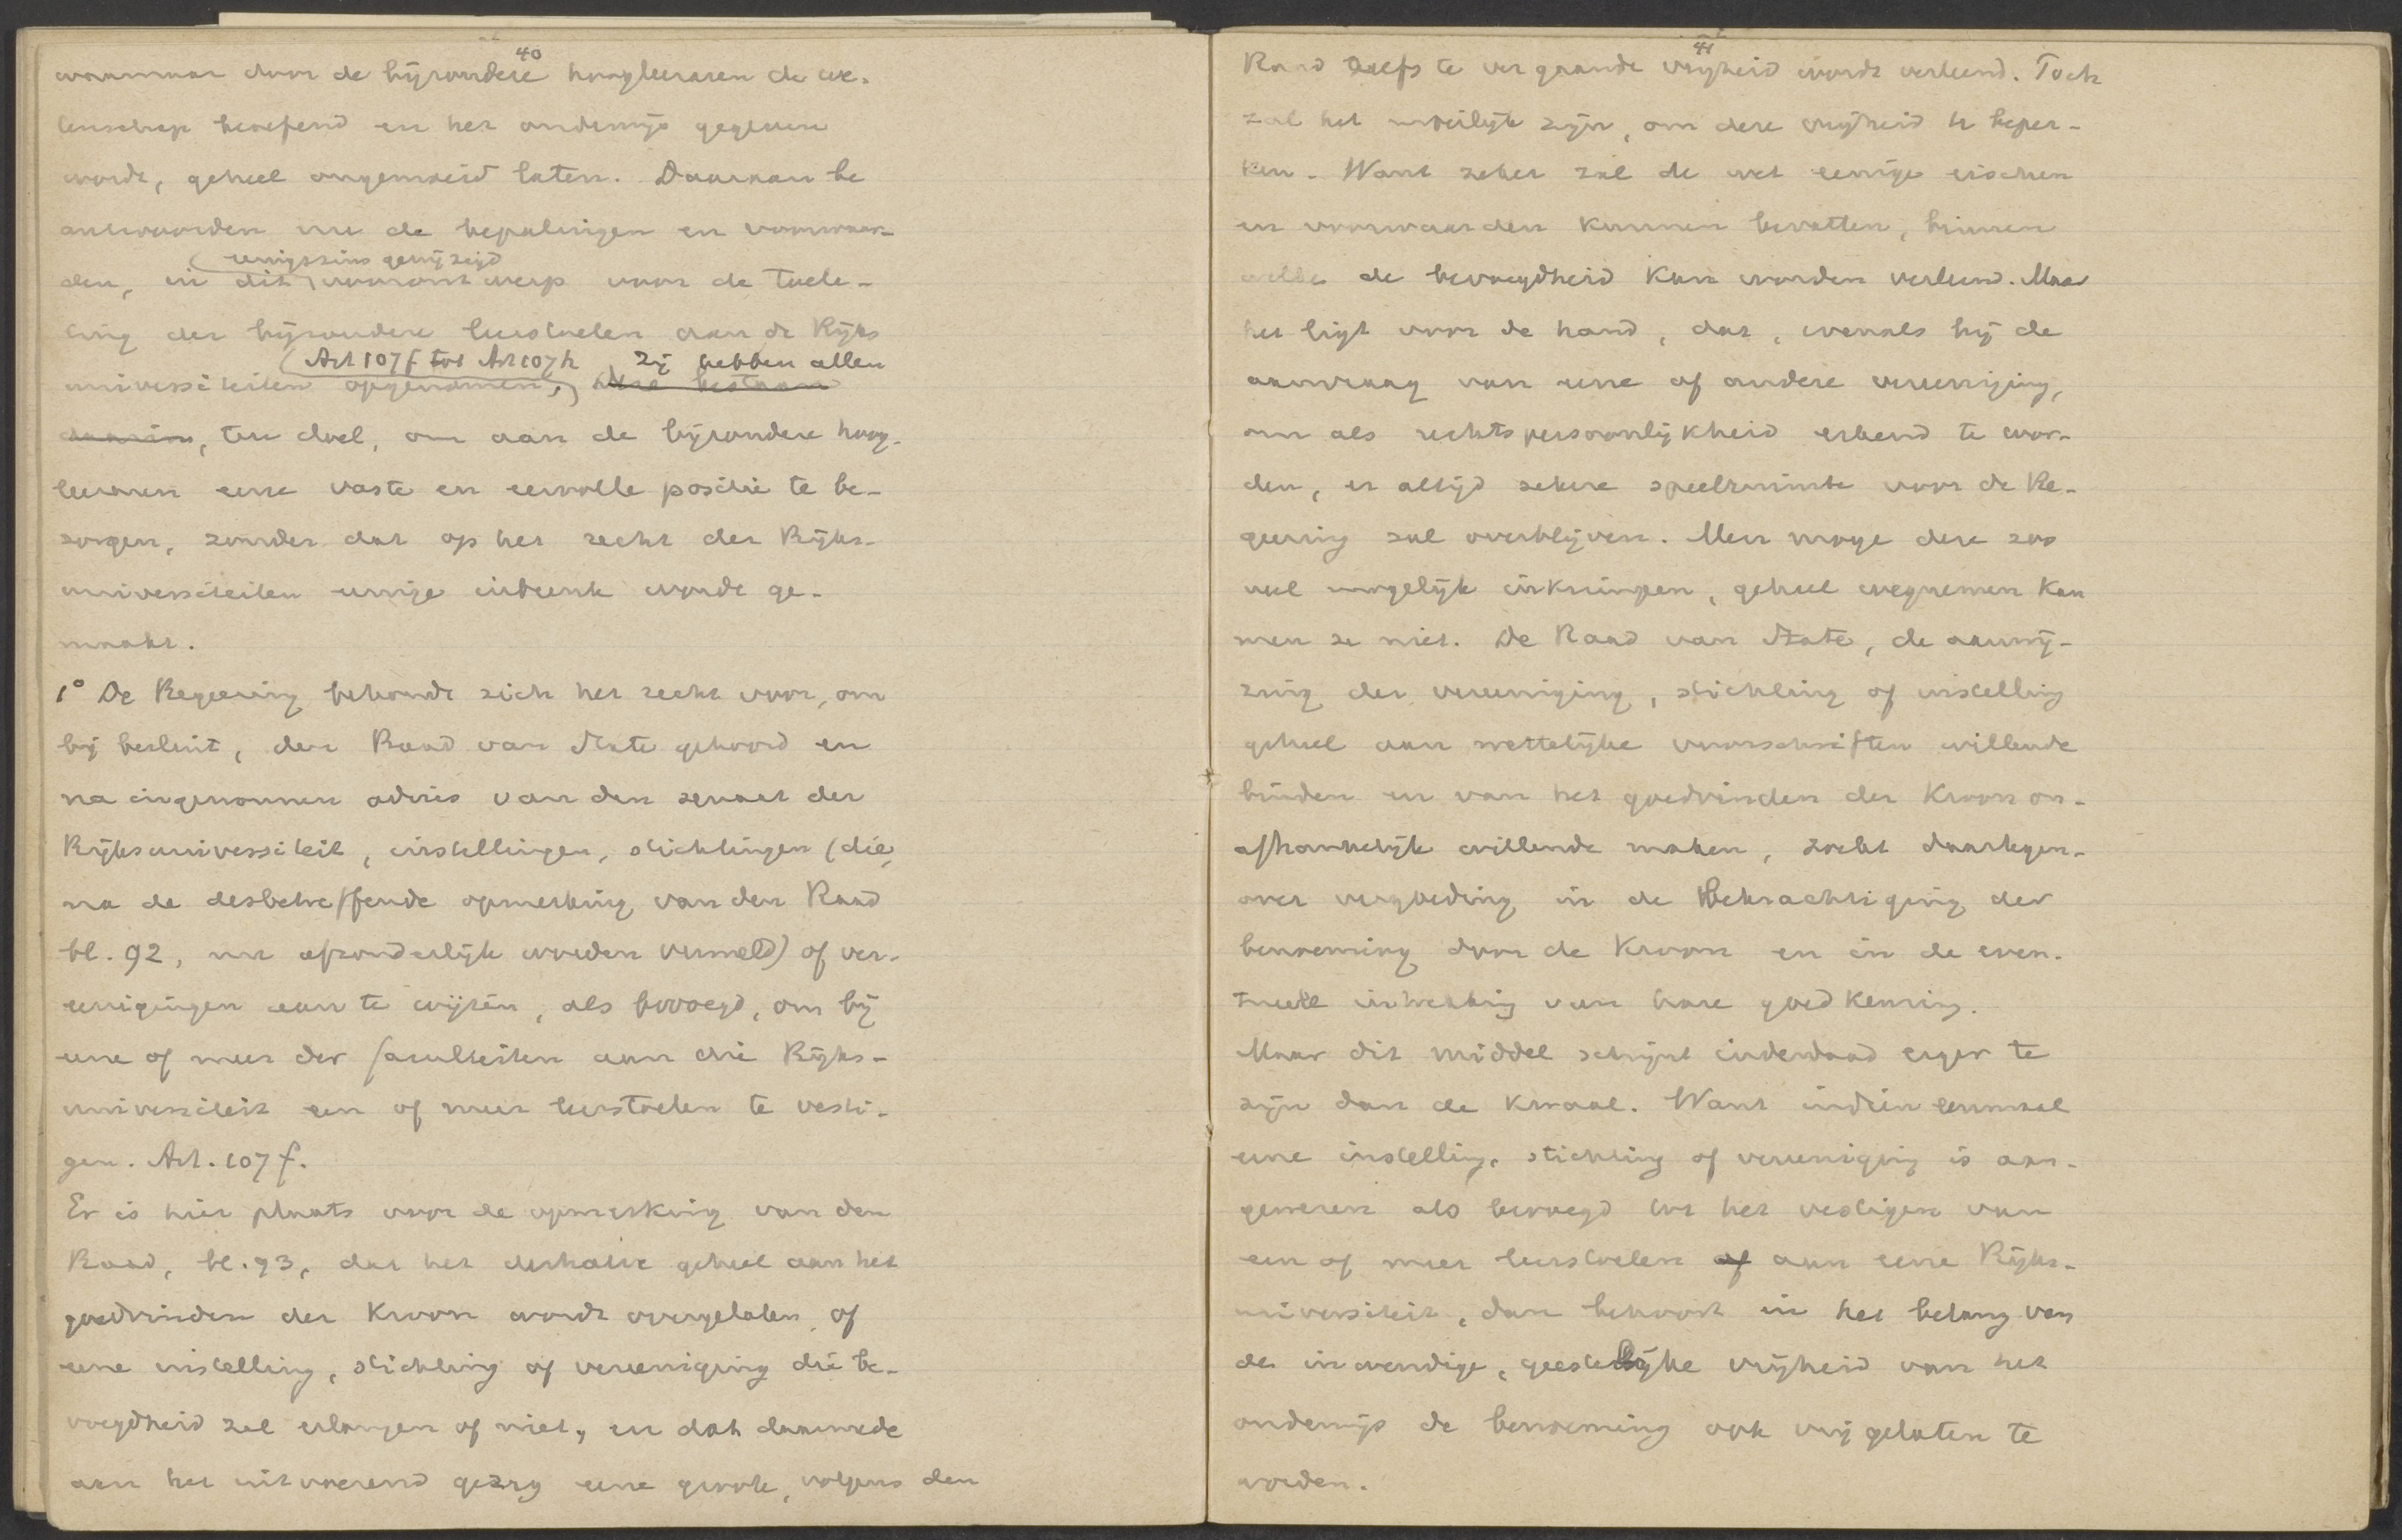 40
waarnaar door de bijzondere hoogleeraren de we-
tenschap beoefend en het onderwijs gegeven
wordt, geheel ongemoeid laten. Daaraan be
antwoorden nu de bepalingen en voorwaar-
eenigszins gewijzigd
den, in dit voorontwerp voor de toela-
ting der bijzondere leerstoelen aan de Rijks
Art 107f tot Art 107h Zij hebben allen
universiteiten opgenomen,
daarin, ten doel, om aan de bijzondere hoog-
leeraren eene vaste en eervolle positie te be-
zorgen, zonder dat op het recht der Rijks-
universiteiten eenige inbreuk worde ge-
maakt.
1° De Regeering behoudt zich het recht voor, om
bij besluit, den Raad van State gehoord en
na ingenomen advies van den senaat der
Rijksuniversiteit, instellingen, stichtingen (die,
na de desbetreffende opmerking van den Raad
bl. 92, nu afzonderlijk worden vermeld) of ver-
eenigingen aan te wijzen, als bevoegd, om bij
eene of meer der faculteiten aan die Rijks-
universiteit een of meer leerstoelen te vesti-
gen. Art. 107 f.
Er is hier plaats voor de opmerking van den
Raad, bl. 93, dat het derhalve geheel aan het
goedvinden der Kroon wordt overgelaten, of
eene instelling, stichting of vereeniging die be-
voegdheid zal erlangen of niet, en dat daarmede
aan het uitvoerend gezag eene groote, volgens den
41
Raad zelfs te ver gaande vrijheid wordt verleend. Toch
zal het moeilijk zijn, om deze vrijheid te beper-
ken. Want zeker zal de wet eenige eischen
en voorwaarden kunnen bevatten, binnen
welke de bevoegdheid kan worden verleend. Maar
het ligt voor de hand, dat, evenals bij de
aanvraag van eene of andere vereeniging,
om als rechtspersoonlijkheid erkend te wor-
den, er altijd zekere speelruimte voor de Re-
geering zal overblijven. Men moge deze zoo
veel mogelijk inkrimpen, geheel wegnemen kan
men ze niet. De Raad van State, de aanwij-
zing der vereeniging, stichting of instelling
geheel aan wettelijke voorschriften willende
binden en van het goedvinden der Kroon on-
afhankelijk willende maken, zoekt daartegen-
over vergoeding in de Bekrachtiging der
benoeming door de Kroon en in de even-
tueele intrekking van hare goedkeuring.
Maar dit middel schijnt inderdaad erger te
zijn dan de kwaal. Want indien eenmaal
eene instelling, stichting of vereeniging is aan-
gewezen als bevoegd tot het vestigen van
een of meer leerstoelen of aan eene Rijks-
universiteit, dan behoort in het belang van
de inwendige, geestelijke vrijheid van het
onderwijs de benoeming ook vrij gelaten te
worden.